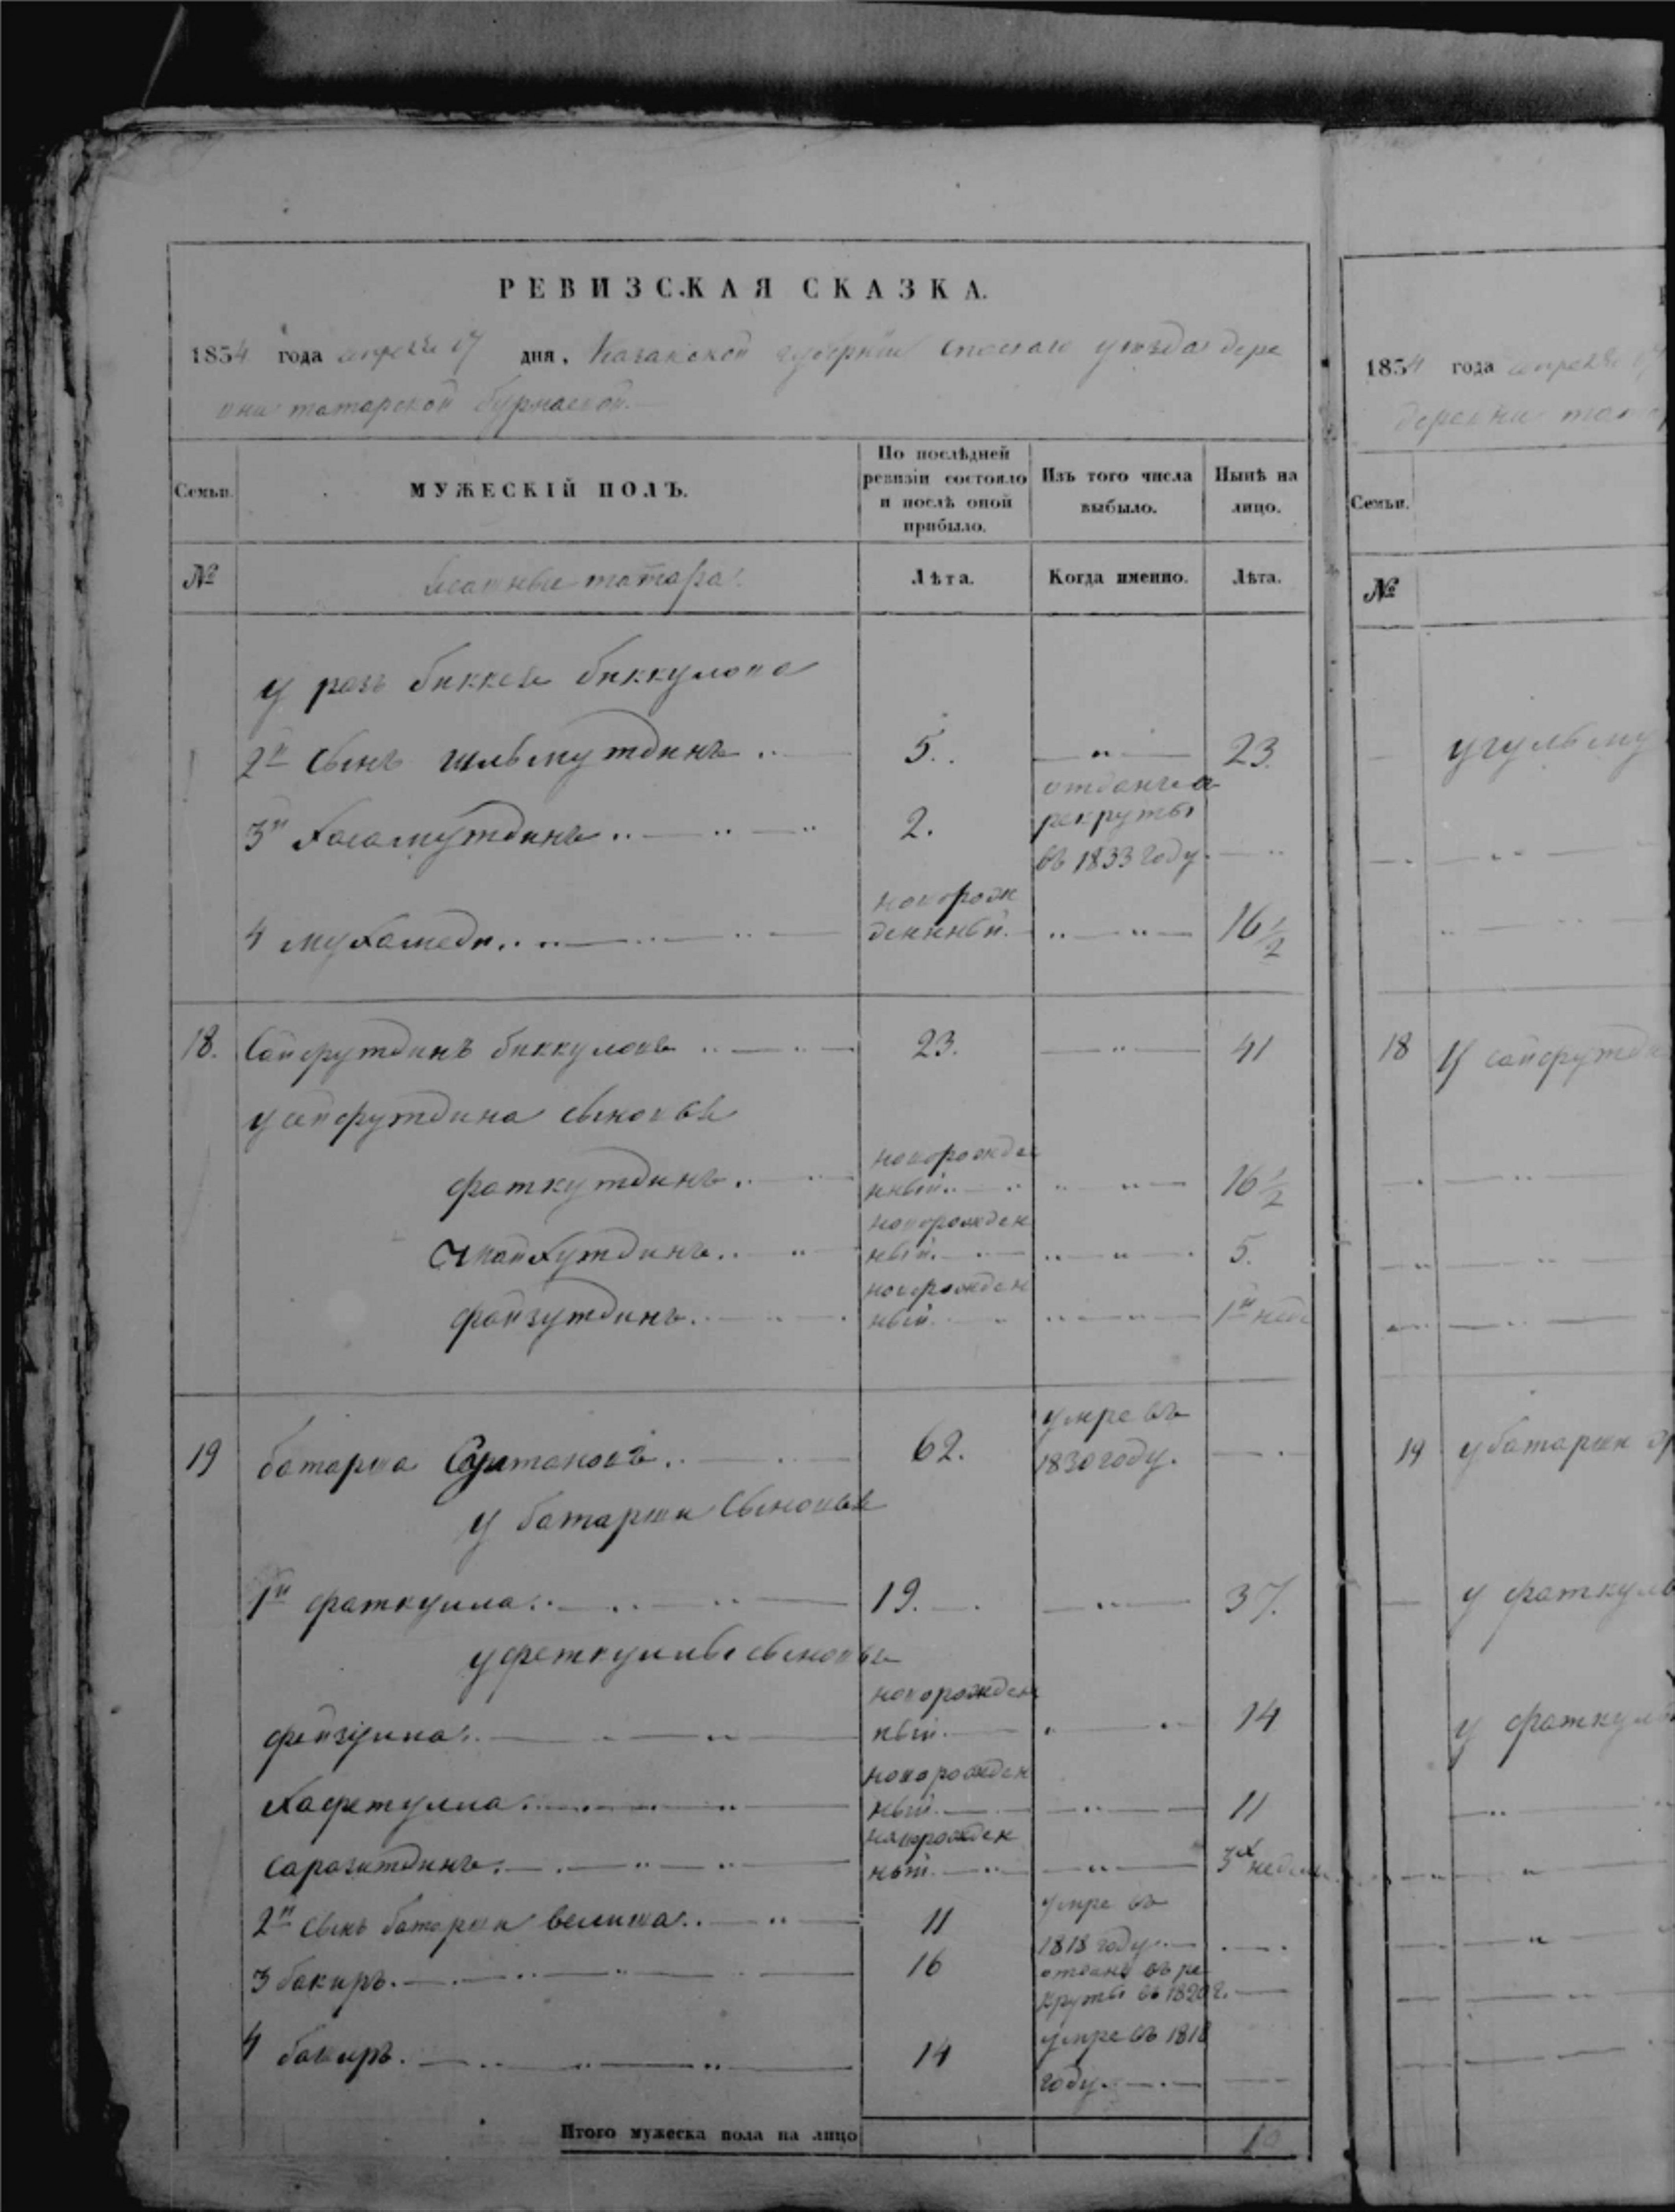 РЕВИЗСКАЯ СКАЗКА.
1854 года апреля 17 дня, Казанской губернии Спаскаго уезда дере
вни татарской бурнаевой.
Семьи. МУЖЕСКІЙ ПОЛЪ. По послѣдней ревизіи состояло и послѣ оной прибыло. Изъ того числа выбыло. Нынѣ на лицо.
№ татара. Лѣта. Когда именно. Лѣта.
у разъ биккея биккулова
2й сынъ шльмутдинъ 5. 23.
3й Хасамутдинъ 2. отданъ в рекруты въ 1833 году
4 мухамеди новорожденный. 16 1/2
18. Сайфутдинъ биккуловъ 23. 41
у сайфутдина сыновья
фаткутдинъ новорожденный 16 1/2
Шайхутдинъ новорожденный. 5.
файзутдинъ новорожденный 1й нед
19 батарша Султановъ 62. умре въ 1830 году.
у батарши сыновья
1й фаткулла 19. 37.
у феткуллы сыновья
фейзулла новорожденный 14
Хафетулла новорожденный 11
саразитдинъ новорожденный 3х недель
2й сынъ батарши велиша 11 умре въ 1818 году
3 бакиръ. 16 отданъ въ рекруты въ 1820 г.
4 бакиръ. 14 умре въ 1818 году
Итого мужеска пола на лицо 10
1854 года апреля 17
деревни тата
Семьи.
№
18 У сайфутди
19 у батарши
у фаткул
у фаткул